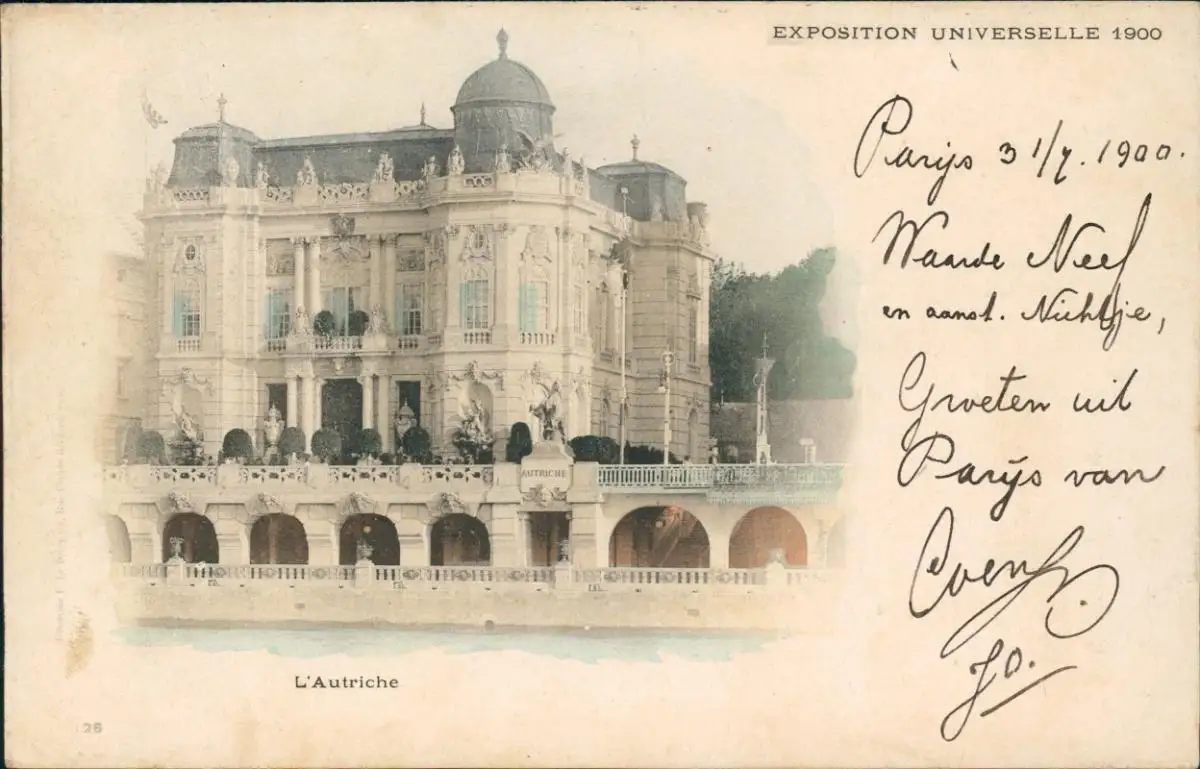 EXPOSITION UNIVERSELLE 1900
Parijs 31/7. 1900.
Waarde Neef
en aanst. Nichtje,
Groeten uit
Parijs van
Coen
Jo.
AUTRICHE
L'Autriche
26